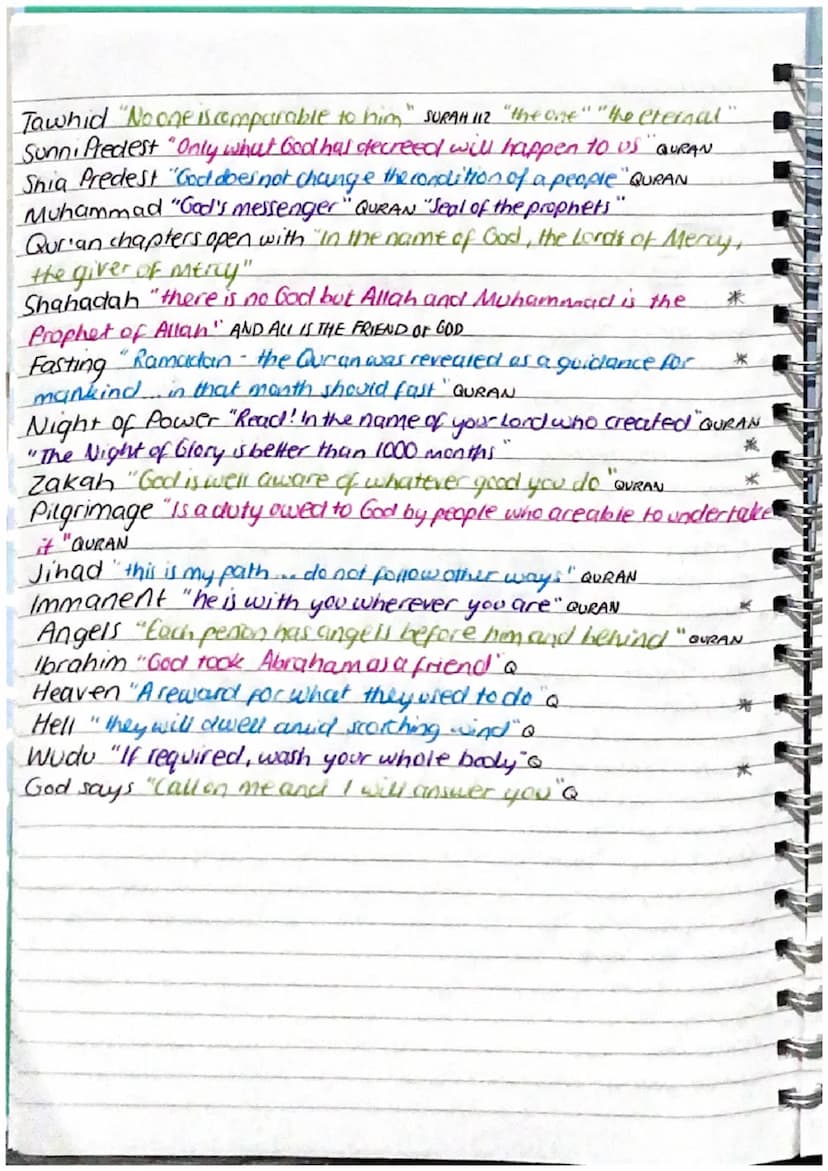 Tawhid "No one is comparable to him" SURAH 112 "the one" "the eternal"
Sunni Predest "Only what God has decreed will happen to us" QURAN
Shia Predest "God does not change the condition of a people" QURAN
Muhammad "God's messenger" QURAN "Seal of the prophets"
Qur'an chapters open with "In the name of God, the Lords of Mercy,
the giver of mercy"
Shahadah "there is no God but Allah and Muhammad is the *
Prophet of Allah" AND ALI IS THE FRIEND OF GOD
Fasting "Ramadan - the Quran was revealed as a guidance for *
mankind ... in that month should fast" QURAN
Night of Power "Read! In the name of your Lord who created" QURAN
"The Night of Glory is better than 1000 months" *
Zakah "God is well aware of whatever good you do" QURAN *
Pilgrimage "Is a duty owed to God by people who are able to undertake
it" QURAN
Jihad "this is my path ... do not follow other ways" QURAN
Immanent "he is with you wherever you are" QURAN *
Angels "Each person has angels before him and behind" QURAN
Ibrahim "God took Abraham as a friend" Q
Heaven "A reward for what they used to do" Q *
Hell "they will dwell amid scorching wind" Q
Wudu "If required, wash your whole body" Q *
God says "Call on me and I will answer you" Q